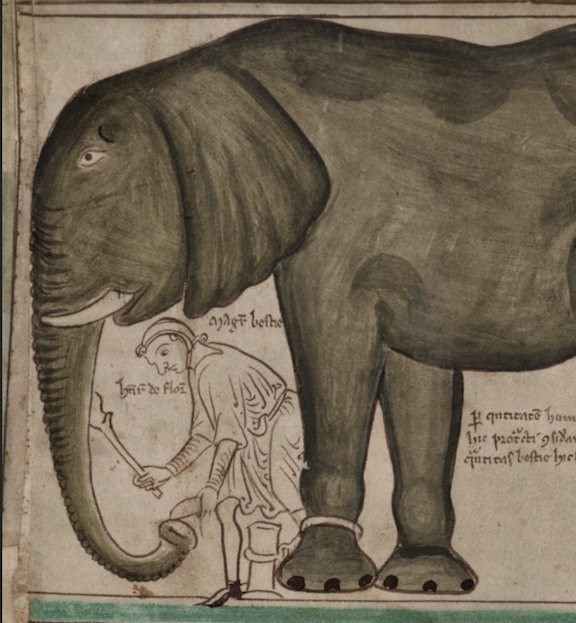 Magr̃ bestie
hñr̃ de flor̃
ꝑ qntitatē homi
hic protͣcti ꝯsidͣa
qͣntitas bestie hic